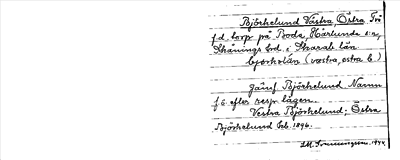 Björkelund Västra, Östra Två
f.d. torp på Boda, Härlunda sn,
Skånings hd. i Skarab. län
bjorkəlún (vestra, ostra b.)
Jämf. Björkelund Namn
f.ö. efter resp. lägen.
Västra Björkelund; Östra
Björkelund Geb. 1896.
1944